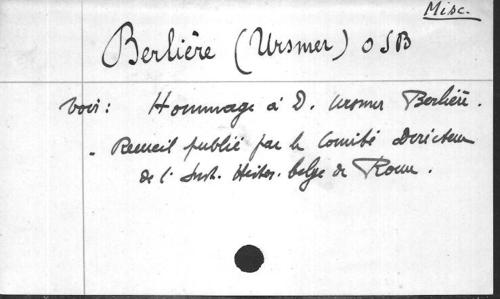 Misc.
Berlière (Ursmer) OSB
voir : Hommage à D. Ursmer Berlière.
- Recueil publié par le Comité Directeur
de l'Inst. Histor. belge de Rome.